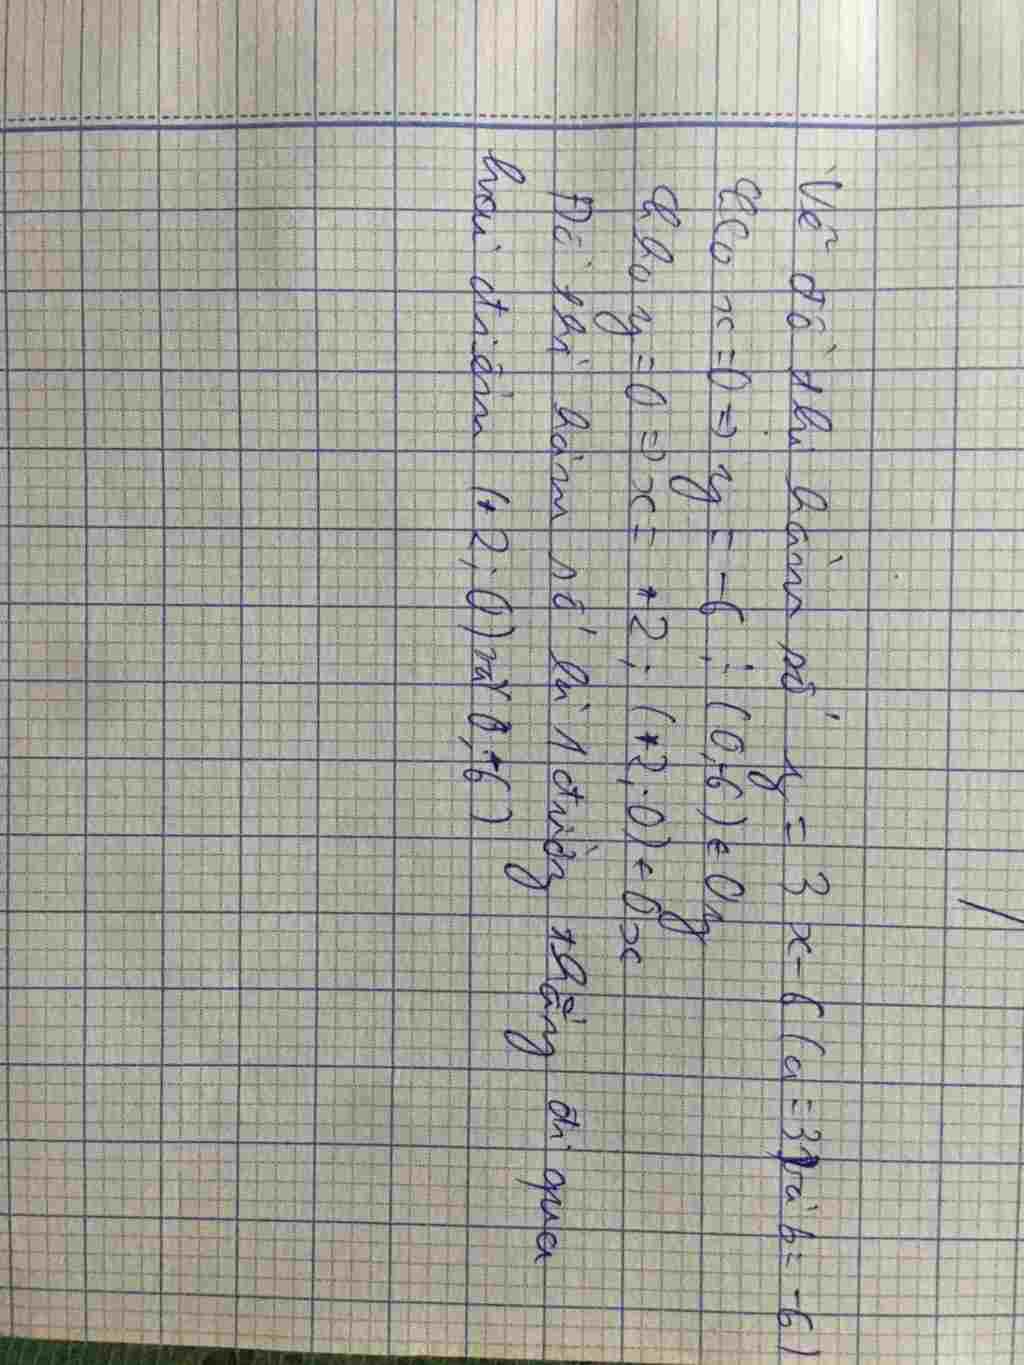 Vẽ đồ thị hàm số y = 3x - 6 (a = 3 và b = -6)
Cho x = 0 => y = -6 ; (0,-6) ∈ Oy
Cho y = 0 => x = +2 ; (+2; 0) ∈ Ox
Đồ thị hàm số là 1 đường thẳng đi qua
hai điểm (+2; 0) và (0, -6)